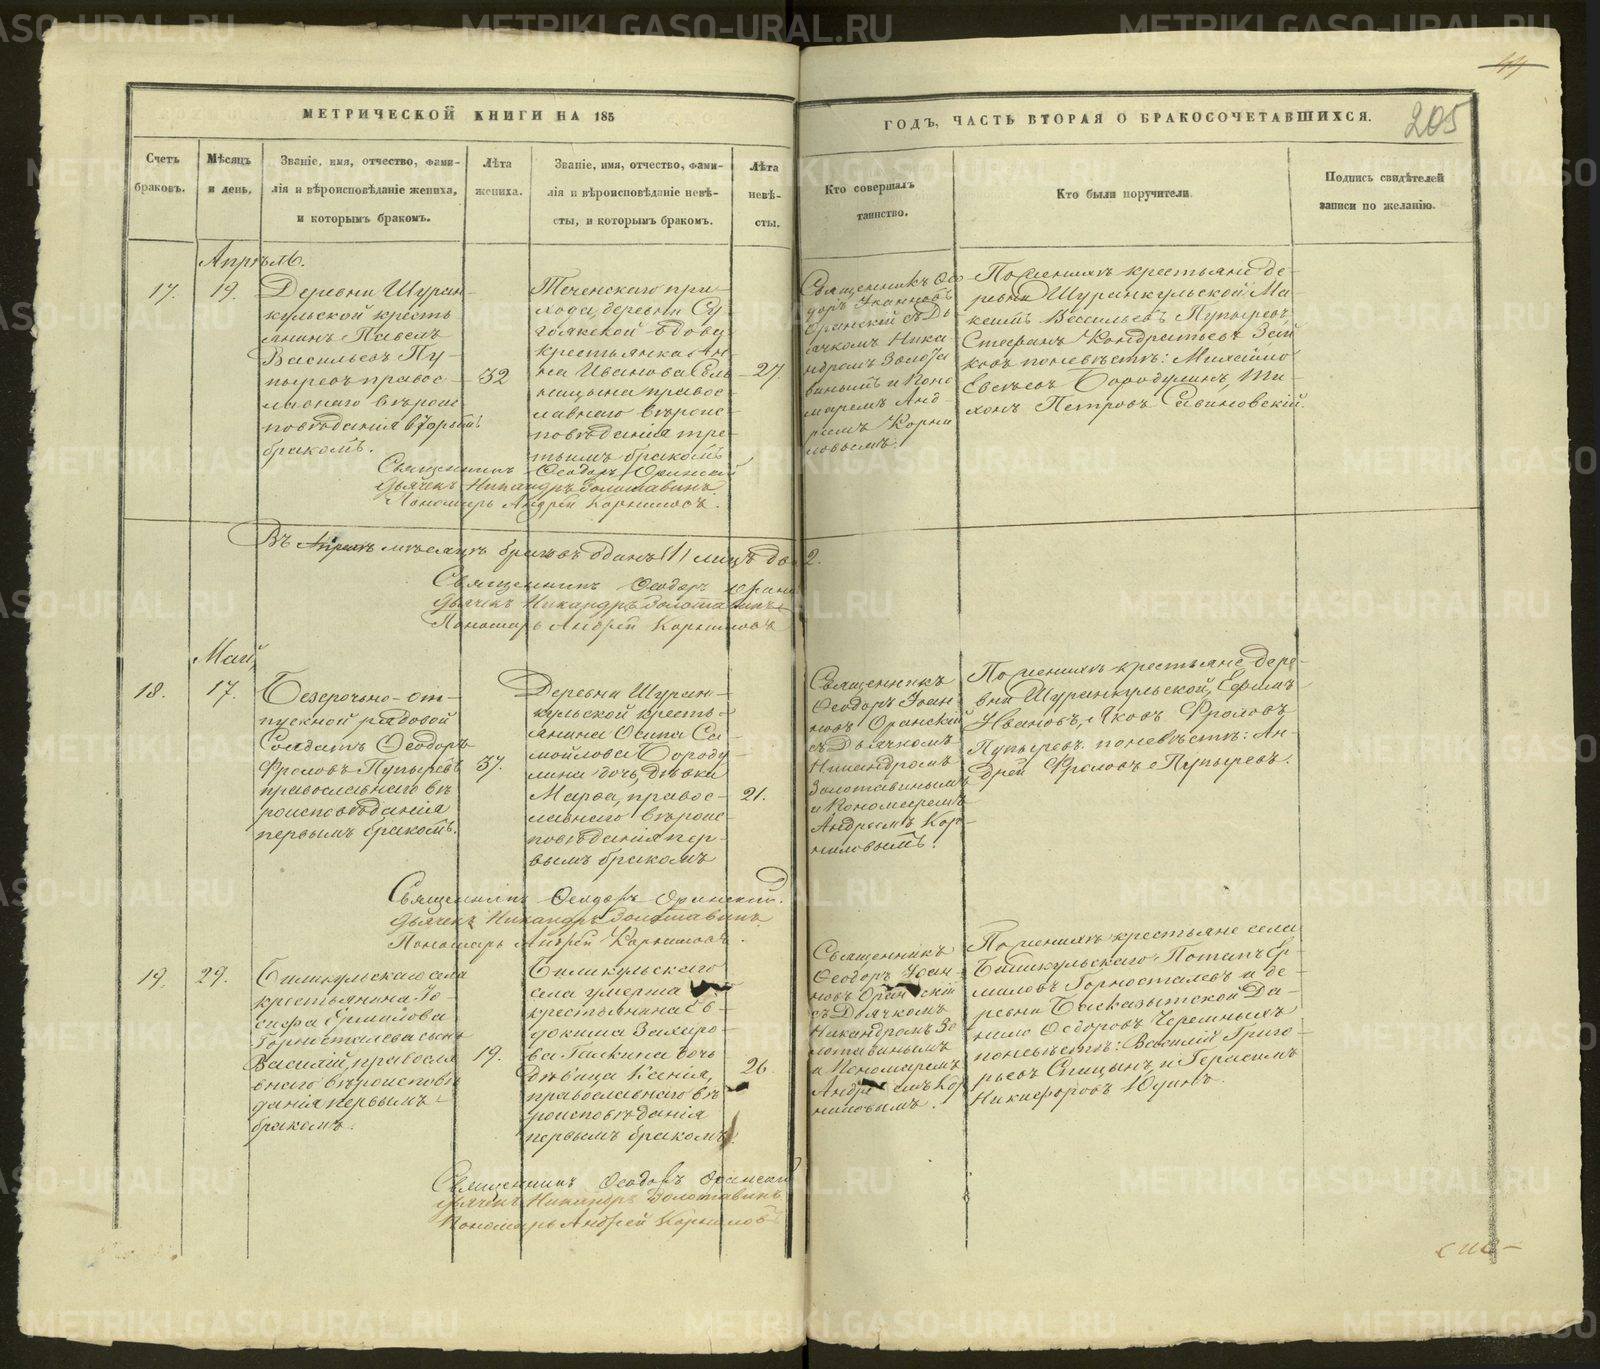 44
205
МЕТРИЧЕСКОЙ КНИГИ НА 185
ГОДЪ, ЧАСТЬ ВТОРАЯ О БРАКОСОЧЕТАВШИХСЯ.
Счетъ
браковъ.
Мѣсяцъ
и день.
Званіе, имя, отчество, фами-
лія и вѣроисповѣданіе жениха,
и которымъ бракомъ.
Лѣта
жениха.
Званіе, имя, отчество, фами-
лія и вѣроисповѣданіе невѣ-
сты, и которымъ бракомъ.
Лѣта
невѣ-
сты.
Кто совершалъ
таинство.
Кто были поручители
Подпись свидѣтелей
записи по желанію.
Апрѣль.
17.
19.
Деревни Шуран-
кульской кресть
янинъ Павелъ
Васильевъ Пу-
пыревъ правос-
лавнаго вѣроис
повѣданія вторымъ
бракомъ.
32
Теченскаго при-
хода, деревни Су
гоякской вдова
крестьянка Ан-
на Иванова
правос-
лавнаго вѣроис-
повѣданія тре-
тьимъ бракомъ
27.
Священникъ Ѳео
доръ Іоанновъ
Оранскій съ Дь
ячкомъ Ника
ндромъ Золота
винымъ и Поно
маремъ Анд-
реемъ Корни
ловымъ.
По женихѣ крестьяне де-
ревни Шуранкульской: Ма-
ксимъ Васильевъ Пупыревъ,
Стефанъ Кондратьевъ Зай
ковъ, по невѣстѣ: Михайло
Евсѣевъ Бородулинъ, Ти-
хонъ Петровъ Савиновскій.
Священникъ Ѳеодоръ Оранскій
Дьячекъ Никандръ Золотавинъ
Пономарь Андрей Корниловъ.
Въ Апрѣлѣ мѣсяцѣ браковъ одинъ (1) лицъ два 2.
Священникъ Ѳеодоръ Оранс
Дьячекъ Никандръ Золотавинъ
Пономарь Андрей Корниловъ
Май,
18.
17.
Безсрочно-от-
пускной рядовой
Солдатъ Ѳеодоръ
Фроловъ Пупыревъ
православнаго вѣ
роисповѣданія
первымъ бракомъ.
37.
Деревни Шуран-
кульской кресть-
янина Осипа Са-
мойлова Бороду
лина дочь, дѣвка
Марѳа, правос-
лавнаго вѣроис-
повѣданія пер-
вымъ бракомъ
21.
Священникъ
Ѳеодоръ Іоан-
новъ Оранскій
съ Дьячкомъ
Никандромъ
Золотавинымъ
и Пономаремъ
Андреемъ Кор-
ниловымъ.
По женихѣ крестьяне дере-
вни Шуранкульской, Ефимъ
Ивановъ, Яковъ Фроловъ
Пупыревъ. по невѣстѣ: Ан-
дрей Фроловъ Пупыревъ.
Священникъ Ѳеодоръ Оранскій.
Дьячекъ Никандръ Золотавинъ
Пономарь Андрей Корниловъ.
19.
29.
села
крестьянина Іо-
сифа Ермилова
Горносталева сынъ
Василій, правосла
внаго вѣроисповѣ
данія первымъ
бракомъ.
19.
села умерша
крестьянина Ев
докима Захаро-
ва Галкина дочь
дѣвица Ксенія,
православнаго вѣ
роисповѣданія
первымъ бракомъ.
26.
Священникъ
Ѳеодоръ Іоан-
новъ Оранскій
съ Дьячкомъ
Никандромъ Зо
лотавинымъ
и Пономаремъ
Андреемъ Кор
ниловымъ.
По женихѣ крестьяне села
Потапъ Ер-
миловъ Горносталевъ и де-
ревни Да-
нило Ѳедоровъ Черемныхъ
по невѣстѣ: Василій Григо-
рьевъ Спицынъ, и Герасимъ
Никифоровъ Юдинъ.
Священникъ Ѳеодоръ Оранскій
Дьячекъ Никандръ Золотавинъ
Пономарь Андрей Корниловъ